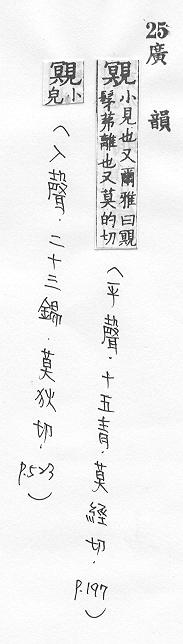 25廣韻
覭小見也又爾雅曰覭髳茀離也又莫的切
(平聲.十五青.莫經切.p.197)
覭小見
(入聲.二十三錫.莫狄切.p.523)